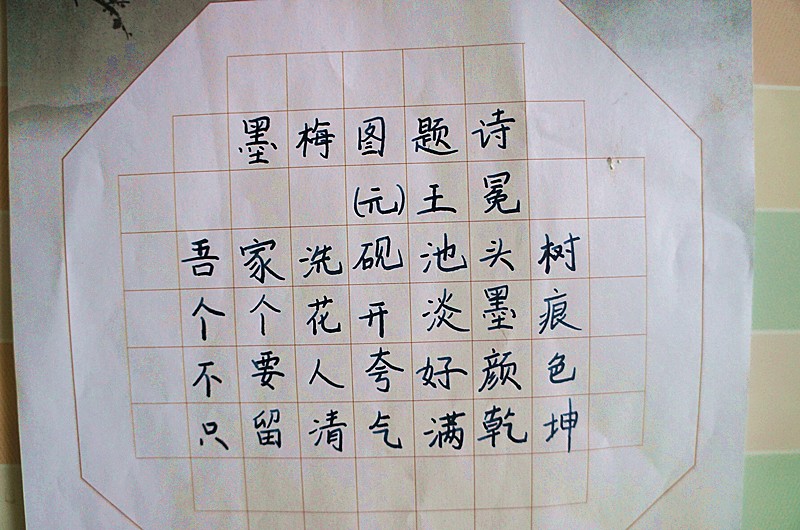 墨梅图题诗
(元)王冕
吾家洗砚池头树
个个花开淡墨痕
不要人夸好颜色
只留清气满乾坤